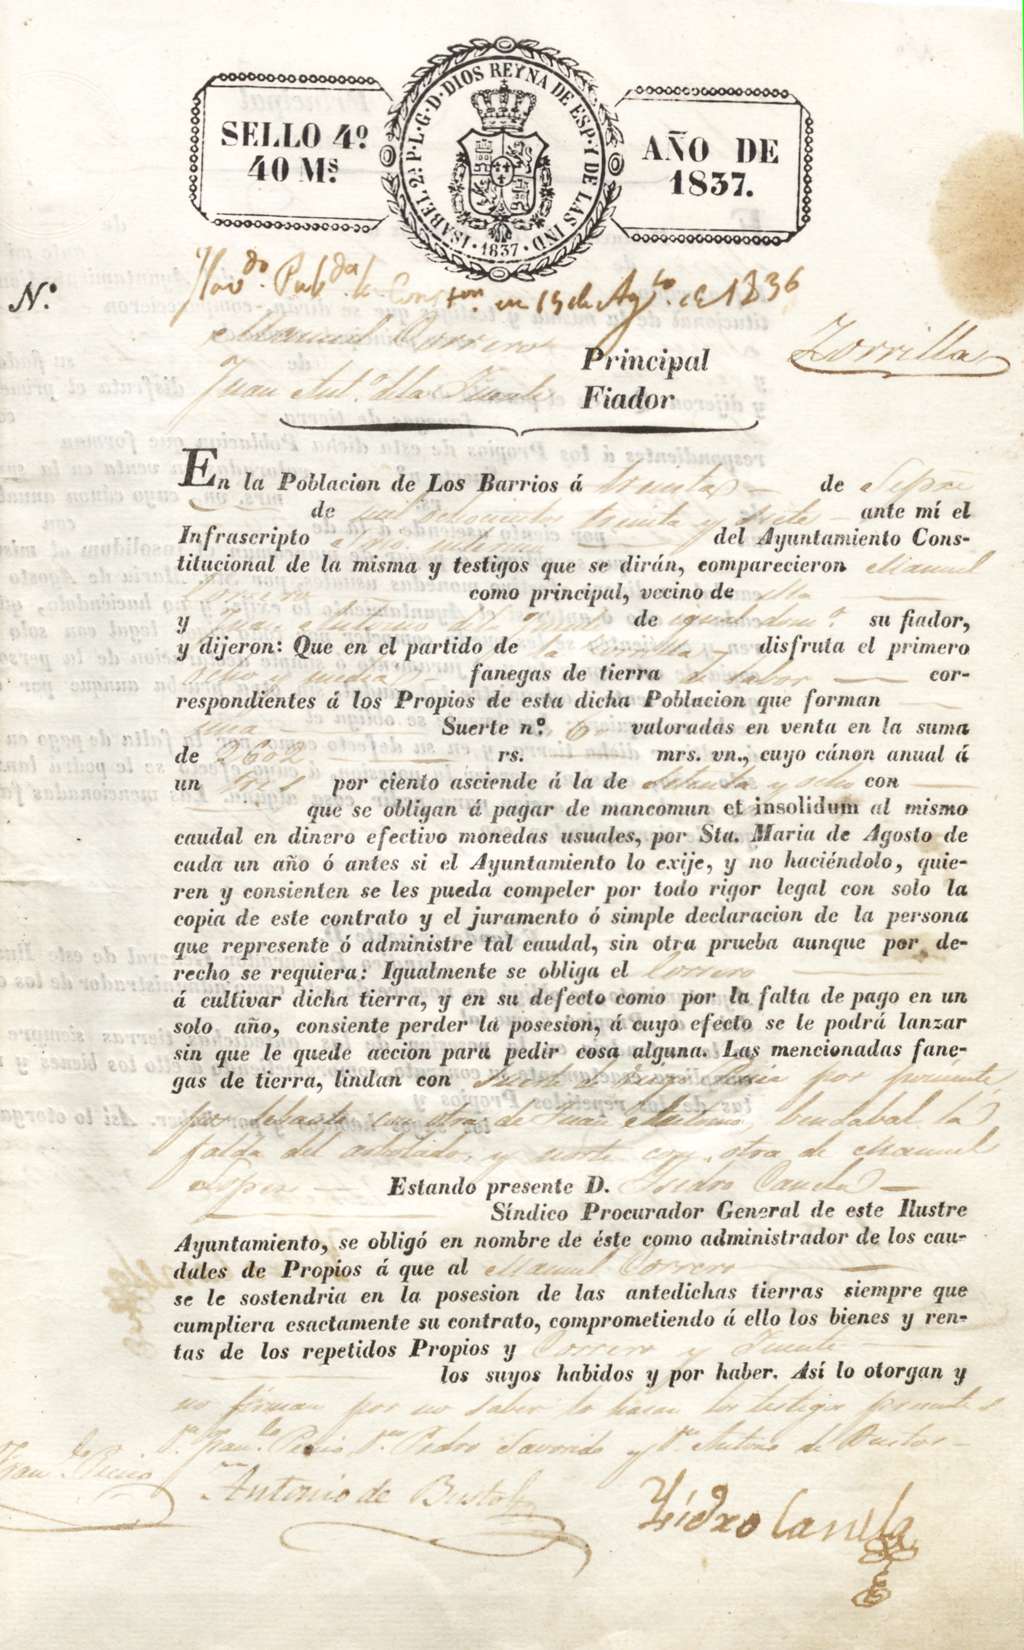 SELLO 4º
40 Mˢ
ISABEL 2ª P·L·G·D·DIOS REYNA DE ESP·Y DE LAS IND
· 1837 ·
AÑO DE
1837.
N.º
en 15 de Agto. de 1836
Manuel Correro
Principal
Zorrilla
Juan Antº. de la Fuente
Fiador
En la Poblacion de Los Barrios á treinta de
de mil ochocientos treinta y siete ante mí el
Infrascripto del Ayuntamiento Cons-
titucional de la misma y testigos que se dirán, comparecieron Manuel
Correro como principal, vecino de
y Juan Antonio de de igual domº. su fiador,
y dijeron: Que en el partido de la Zorrilla disfruta el primero
Ocho y media fanegas de tierra de labor cor-
respondientes á los Propios de esta dicha Poblacion que forman
una Suerte n.º 6 valoradas en venta en la suma
de 2602 rs. mrs. vn., cuyo cánon anual á
un tres por ciento asciende á la de setenta y ocho con
que se obligan á pagar de mancomun et insolidum al mismo
caudal en dinero efectivo monedas usuales, por Sta. Maria de Agosto de
cada un año ó antes si el Ayuntamiento lo exije, y no haciéndolo, quie-
ren y consienten se les pueda compeler por todo rigor legal con solo la
copia de este contrato y el juramento ó simple declaracion de la persona
que represente ó administre tal caudal, sin otra prueba aunque por de-
recho se requiera: Igualmente se obliga el Correro
á cultivar dicha tierra, y en su defecto como por la falta de pago en un
solo año, consiente perder la posesion, á cuyo efecto se le podrá lanzar
sin que le quede accion para pedir cosa alguna. Las mencionadas fane-
gas de tierra, lindan con suerte de por poniente
por lebante con otra de Juan Antonio, bendabal la
falda del y norte con otra de Manuel
Lopez Estando presente D. Isidro Canela
Síndico Procurador General de este Ilustre
Ayuntamiento, se obligó en nombre de éste como administrador de los cau-
dales de Propios á que al Manuel Correro
se le sostendria en la posesion de las antedichas tierras siempre que
cumpliera esactamente su contrato, comprometiendo á ello los bienes y ren-
tas de los repetidos Propios y Correro y Fuente
los suyos habidos y por haber. Así lo otorgan y
no firman por no saber lo hacen los testigos presentes
Dn. Pedro y Dn. Antonio de Bustos
Antonio de Bustos
Ysidro Canela